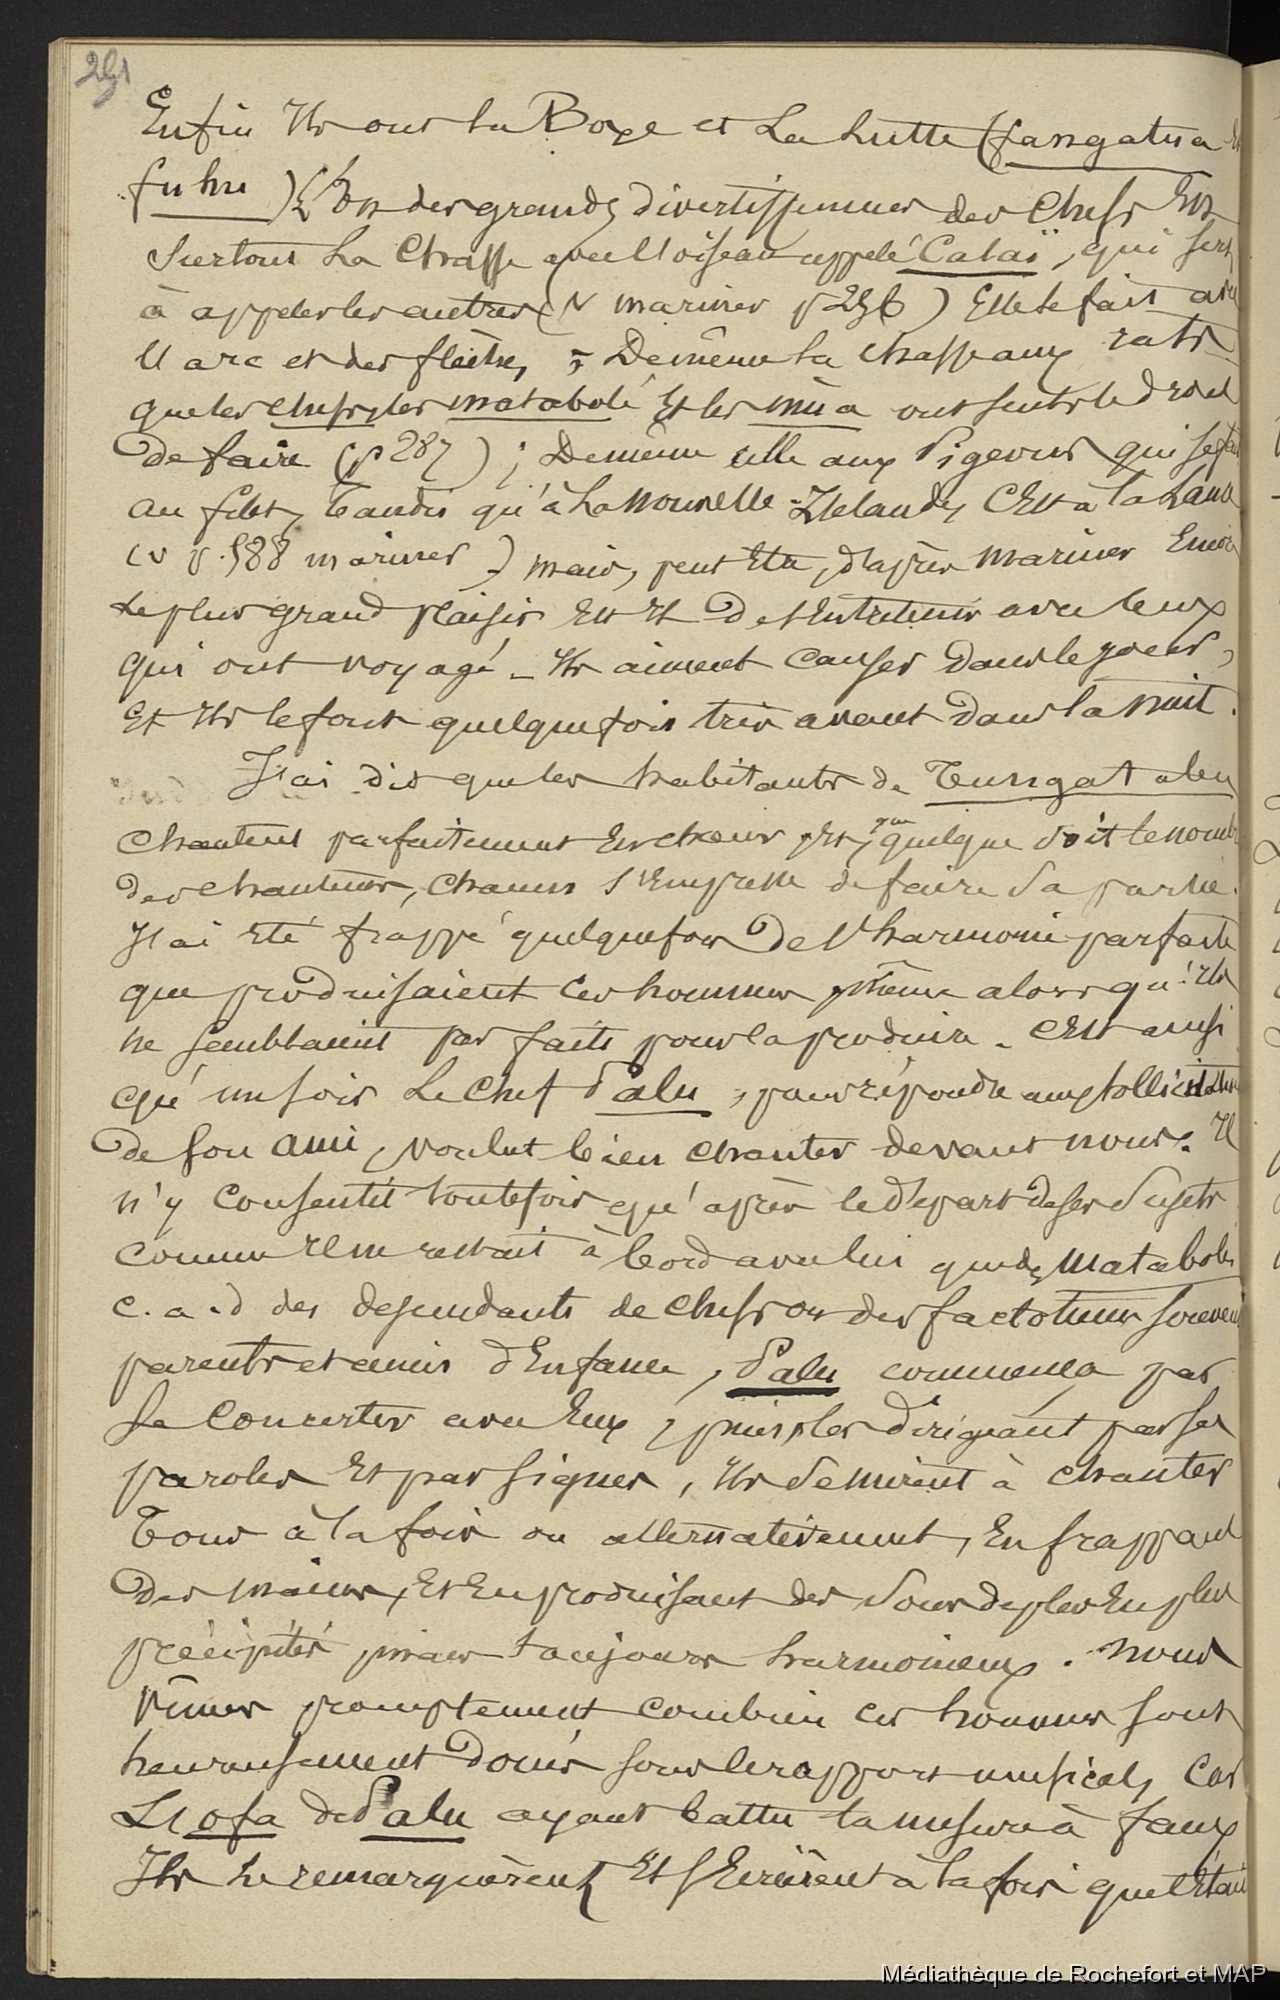 291
Enfin Ils ont la Boxe et La Lutte (fangatua Et
fuhu) L'un des grands divertissemens des Chefs Est
Surtout La Chasse avec l'oiseau appelé Calaï, qui sert
à appeler les autres (v mariner p 236) Elle se fait avec
l'arc et des flèches, ; De même la chasse aux rats
que les chefs, les matabole Et les mua ont seuls le droit
De faire (p 287) ; De même celle aux Pigeons qui se fait
au filet, tandis qu'à La nouvelle-Zélande, C'Est à la Lance
(v p. 388 mariner) mais, peut Etre, d'après mariner Encore
Le plus grand plaisir Est Il De s'Entretenir avec ceux
qui ont voyagé _ Ils aiment causer Dans le jour,
Et Ils le font quelquefois très avant Dans la nuit.
J'ai dit que les habitants de Tungatabu
chantent parfaitement En choeur Et, que quelque soit le nombre
des chanteurs, chacun s'Empresse de faire Sa partie.
J'ai Eté frappé quelquefois De l'harmonie parfaite
que produisaient ces hommes même alors qu'ils
ne semblaient pas faits pour la produire. C'Est ainsi
qu'un soir Le Chef Palu, pour répondre aux sollicitations
De son ami, voulut bien chanter devant nous. Il
n'y Consentit toutefois qu'après le départ de ses Sujets
Comme Il ne restait à bord avec lui que des Matabolés
c. a. d des descendants de Chefs ou des factotums souvent
parents et amis d'Enfance, Palu commença par
Se Concerter avec Eux, puis les dirigeant par ses
paroles Et par signes, Ils se mirent à chanter
Tous à la fois ou alternativement, En frappant
Des mains, Et En produisant des Sons de plus En plus
précipités mais toujours harmonieux. Nous
vîmes promptement combien ces hommes sont
heureusement Doués sous le rapport musical, Car
L'ofa de Palu ayant battu la mesure à faux
Ils le remarquèrent Et s'Ecrièrent à la fois que c'Etait
Médiathèque de Rochefort et MAP